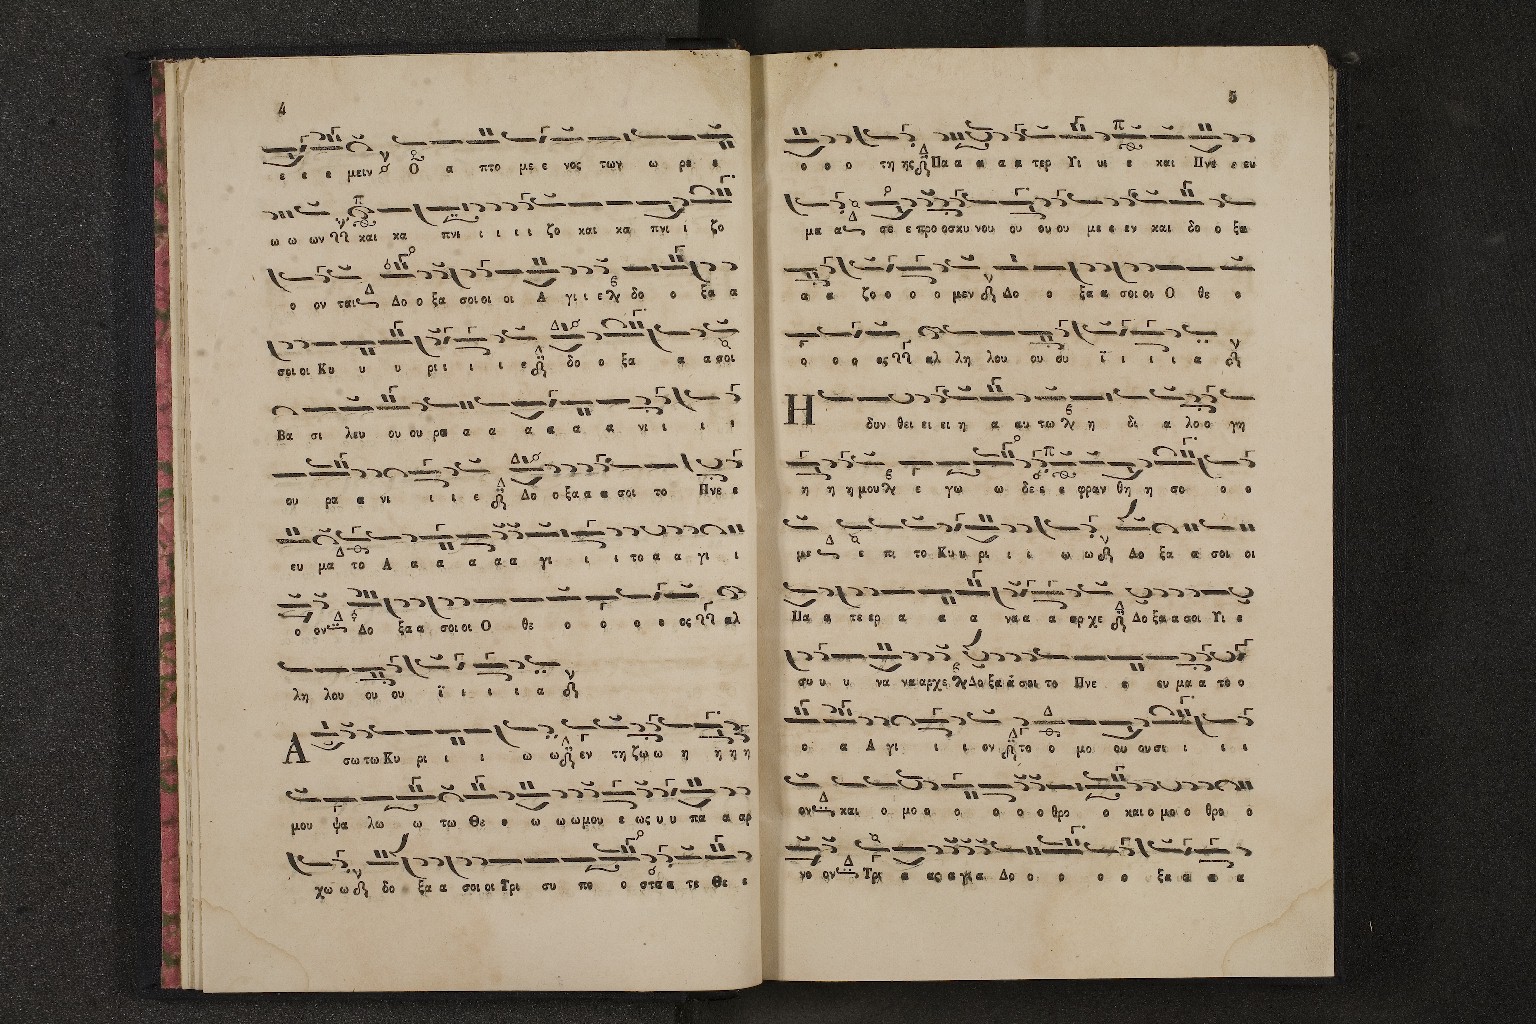 4
ε ε ε μειν Ο α πτο με ε νος των ω ρε ε
ω ω ων και κα πνι ι ι ι ι ζο και κα πνι ι ζο
ο ον ται Δο ο ξα σοι οι οι Α γι ι ε δο ο ξα α
σοι οι Κυ υ υ ρι ι ι ι ε δο ο ξα α α σοι
Βα σι λευ ου ου ρα α α α α α α νι ι ι ι
ου ρα α νι ι ι ε Δο ο ξα α α σοι το Πνε ε
ευ μα το Α α α α α α γι ι ι το α α γι ι
ο ον Δο ξα α σοι οι Ο θε ο ο ο ε ος αλ
λη λου ου ου ϊ ι ι ι α
Α σω τω Κυ ρι ι ι ω ω εν τη ζω ω η η η η
μου ψα λω ω τω Θε ε ω ω ω μου ε ως υ υ πα α αρ
χω ω δο ξα α σοι οι Τρι συ πο ο στα α τε Θε ε
5
ο ο ο τη ης Πα α α α α τερ Υι υι ε και Πνε ε ευ
μα α σε ε προ οσκυ νου ου ου ου με ε εν και δο ο ξα
α α ζο ο ο ο μεν Δο ο ξα α σοι οι Ο θε ο
ο ο ο ος αλ λη λου ου ου ϊ ι ι ι α
Η δυν θει ει ει η α αυ τω η δι α λο ο γη
η η η μου ε γω ω δε ε ε φραν θη η σο ο ο
με ε πι το Κυ υ ρι ι ι ω ω Δο ξα α σοι οι
Πα α τε ερ α α α να α α αρ χε Δο ξα α σοι Υι ε
συ υ υ να να αρχε Δο ξα ά σοι το Πνε ε ευ μα α το ο
ο α Α γι ι ι ον το ο μο ου ου σι ι ι ι
ον και ο μο ο ο ο ο ο θρο ο και ο μο ο θρο ο
νο ον Τρι α ας α γι α Δο ο ο ο ο ξα α α α